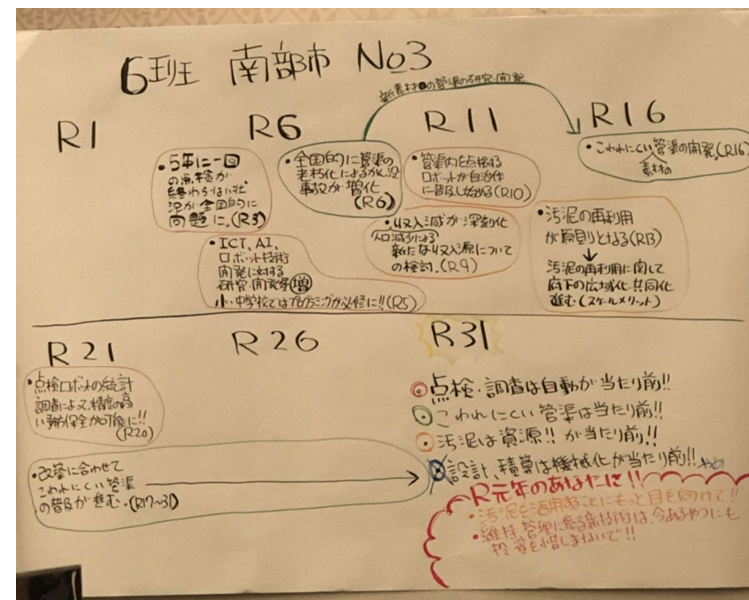 6班 南部市 No3
新素材の管渠の研究・開発
R1 R6 R11 R16
・5年に一回
の点検が
終わらない状
況が全国的に
問題に。(R3)
・全国的に管渠の
老朽化によるかん没
事故が増化
(R6)
・管渠内を点検する
ロボットが自治体
に普及し始める(R10)
・こわれにくい管渠の開発(R16)
素材の
・ICT、AI、
ロボット技術
開発に対する
研究・開発費増
小・中学校ではプログラミングが必修に!!(R5)
・収入減が深刻化
人口減少による
新たな収入源について
の検討。(R9)
・汚泥の再利用
が原則となる(R13)
↓
汚泥の再利用に関して
府下の広域化・共同化
進む(スケールメリット)
R21 R26 R31
・点検ロボットの統計
調査によって、精度の高
い予防保全が可能に!!
(R20)
・改築に合わせて
こわれにくい管渠
の普及が進む。(R17~31)
点検・調査は自動が当たり前!!
こわれにくい管渠は当たり前!!
汚泥は資源!!が当たり前!!
設計、積算は機械化が当たり前!!
R元年のあなたに!!
・汚泥を活用することにもっと目を向けて!!
・維持、管理に係る新技術は、今あるやつにも
投資を惜しまないで!!